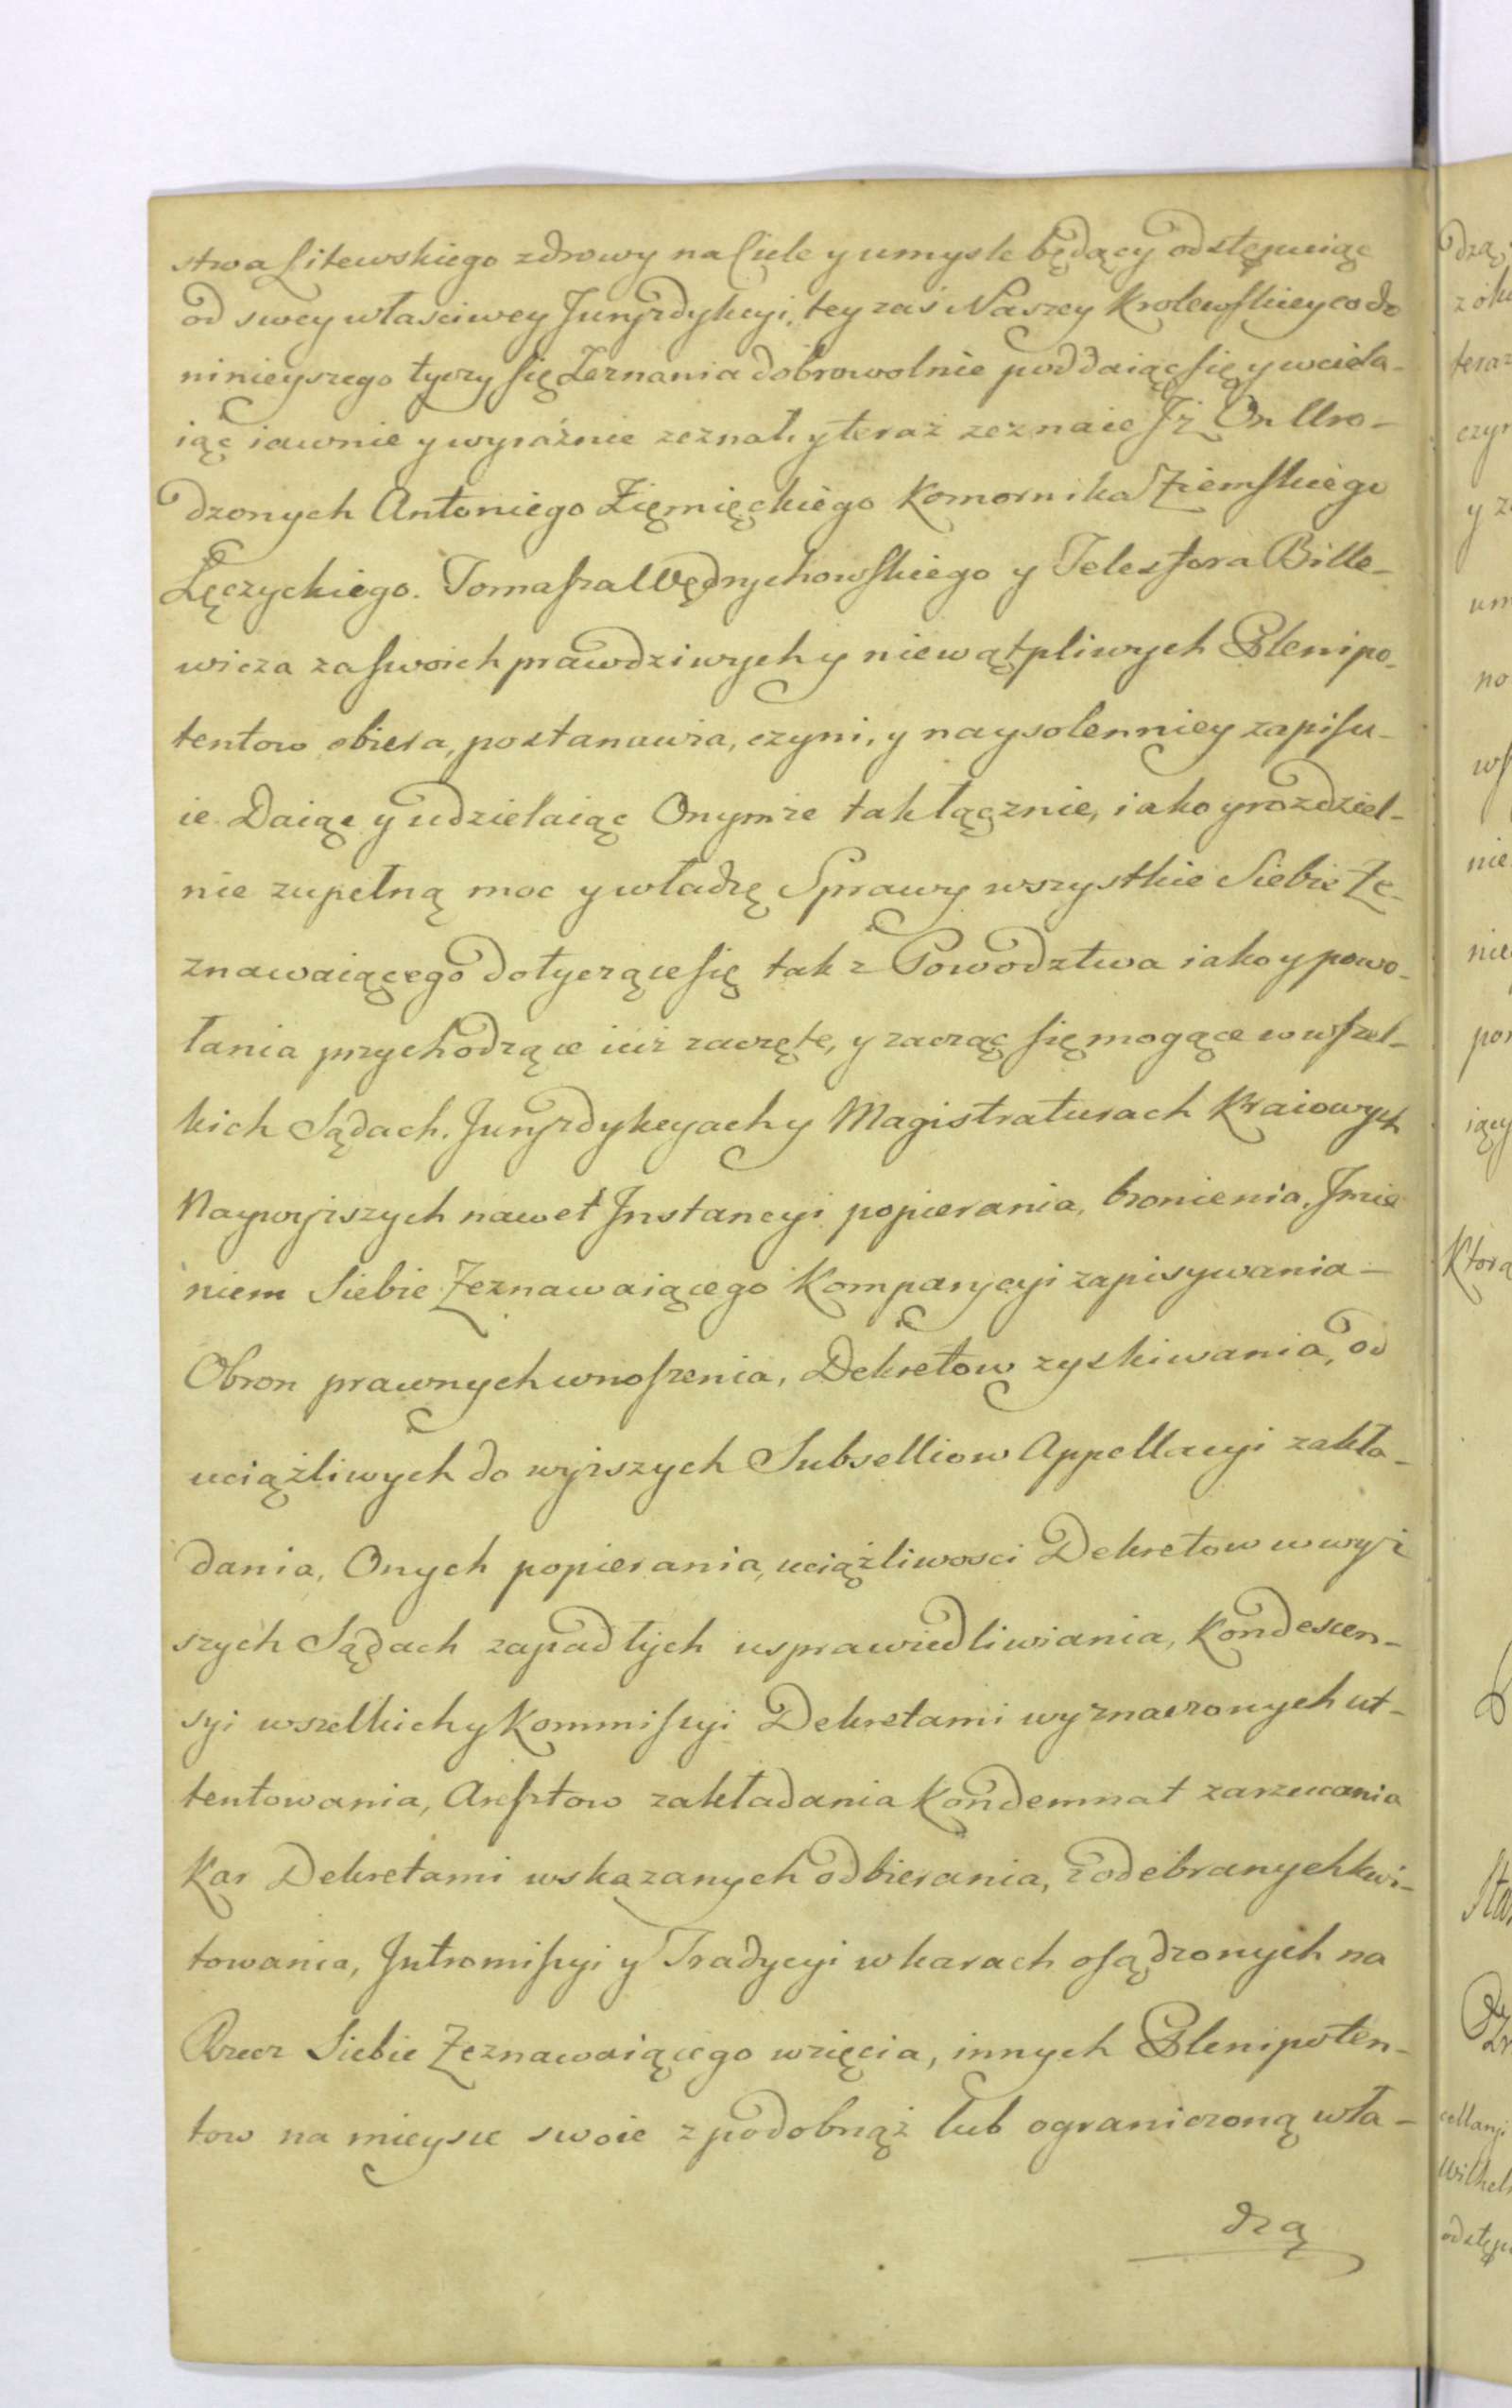 stwa Litewskiego zdrowy na Ciele y umysle będący odstępuiąc
od swey właściwey Juryzdykcyi, tey zaś Naszey Krolewskiey co do
ninieyszego tyczy się Zeznania dobrowolnie poddaiąc się y wciela-
iąc iawnie y wyraźnie zeznał, y teraz zeznaie Jż On Uro-
dzonych Antoniego Ziemięckiego Komornika Ziemskiego
Łęczyckiego. Tomasza Wędrychowskiego y Telesfora Bille-
wicza za swoich prawdziwych y niewątpliwych Plenipo-
tentow obiera, postanawia, czyni, y naysolenniey zapisu-
ie Daiąc y udzielaiąc Onymże tak łącznie, iako y rozdziel-
nie zupełną moc y władzę Sprawy wszystkie Siebie Ze-
znawaiącego dotyczące się tak z Powodztwa iako y powo-
łania przychodzące iuż zaczęte, y zacząć się mogące w wszel-
kich Sądach, Juryzdykcyach y Magistraturach Kraiowych
Naywyższych nawet Jnstancyi popierania, bronienia, Jmie
niem Siebie Zeznawaiącego Komparycyi zapisywania -
Obron prawnych wnoszenia, Dekretow zyskiwania, od
uciążliwych do wyższych Subselliow Appellacyi zakła-
dania, Onych popierania, uciążliwosci Dekretow w wyż
szych Sądach zapadłych usprawiedliwiania, Kondescen-
syi wszelkich y Kommissyi Dekretami wyznaczonych ut-
tentowania, Aresztow zakładania Kondemnat zarzucania
Kar Dekretami wskazanych odbierania, z odebranych kwi-
towania, Jntromissyi y Tradycyi w karach osądzonych na
Rzecz Siebie Zeznawaiącego wzięcia, innych Plenipoten-
tow na mieysce swoie z podobnąż lub ograniczoną wła-
dzą